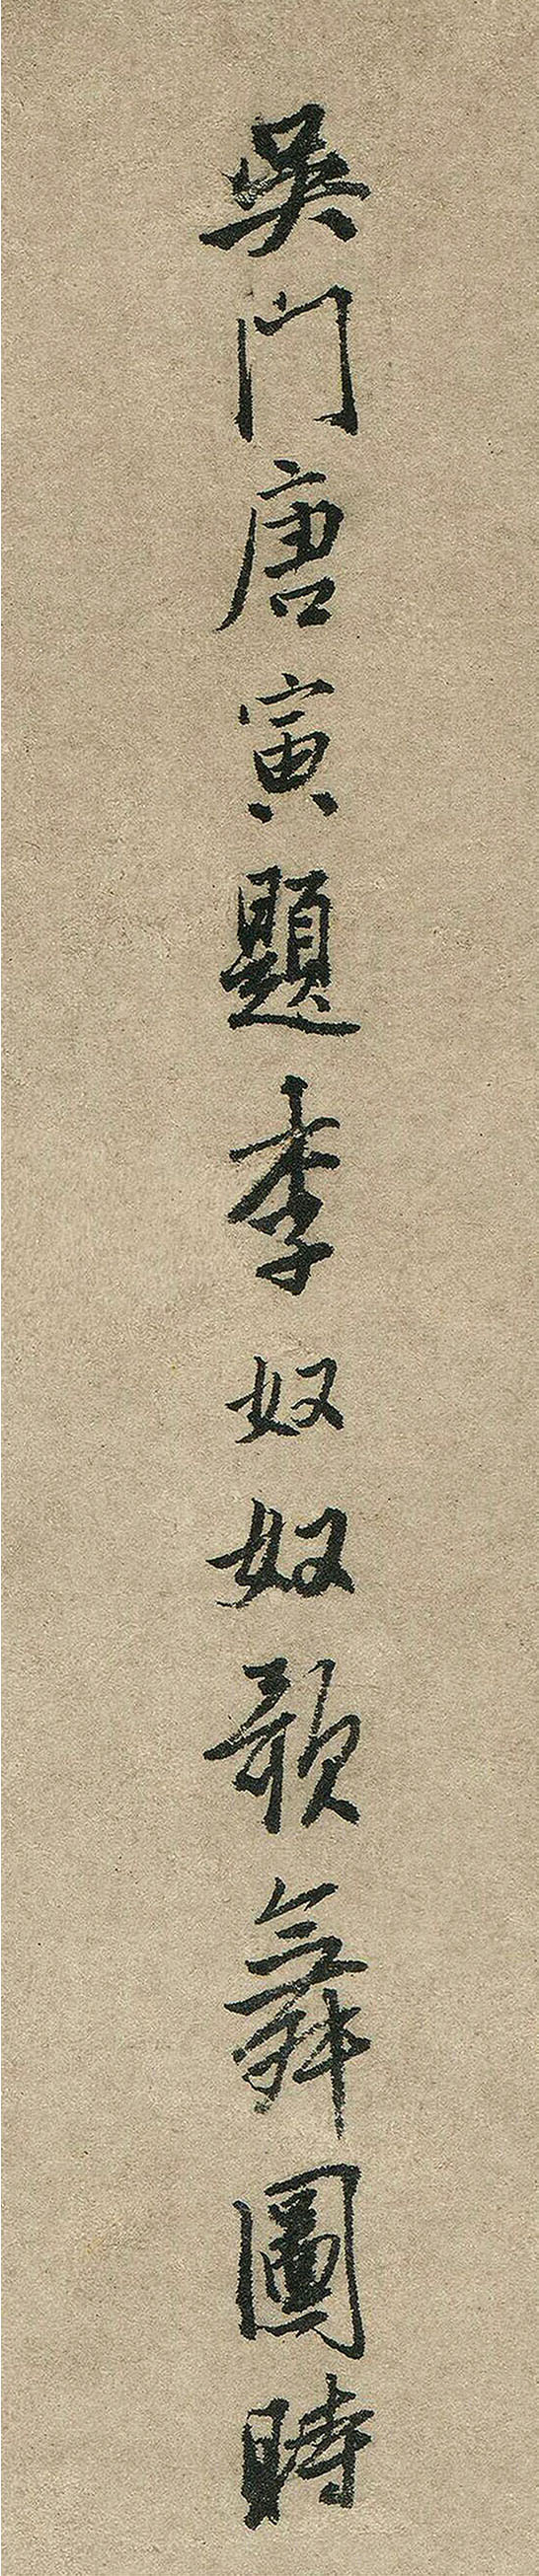 吳門唐寅題李奴奴歌舞圖時